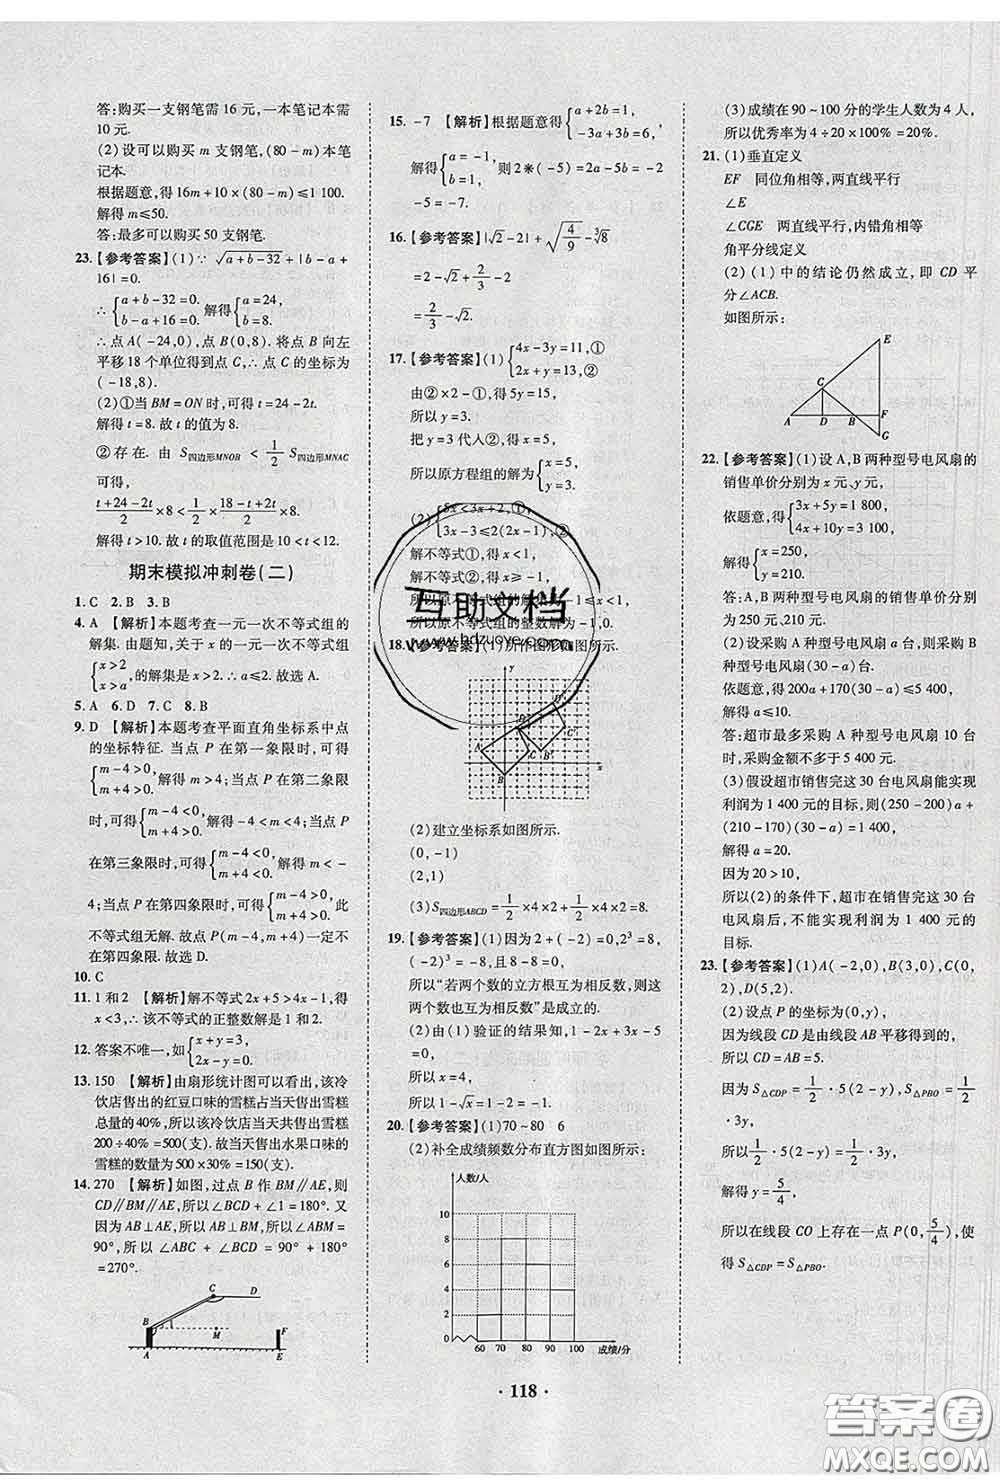 答:购买一支钢笔需 16 元,一本笔记本需
10 元.
(2)设可以购买 m 支钢笔,(80-m)本笔
记本.
根据题意,得 16m+10×(80-m)≤1 100.
解得 m≤50.
答:最多可以购买 50 支钢笔.
23.【参考答案】(1)∵ √(a+b-32)+|b-a+
16|=0.
∴{a+b-32=0, b-a+16=0.解得{a=24, b=8.
∴点 A(-24,0),点 B(0,8).将点 B 向左
平移 18 个单位得到点 C,∴点 C 的坐标为
(-18,8).
(2)①当 BM=ON 时,可得 t=24-2t.
解得 t=8.故 t 的值为 8.
②存在. 由 S四边形MNOB < 1/2 S四边形MNAC
可得,
(t+24-2t)/2×8<1/2×(18-t+2t)/2×8.
解得 t>10.故 t 的取值范围是 10<t<12.
期末模拟冲刺卷(二)
1. C 2. B 3. B
4. A 【解析】本题考查一元一次不等式组的
解集. 由题知,关于 x 的一元一次不等式组
{x>2, x>a,的解集是 x>2.∴a≤2.故选 A.
5. A 6. D 7. C 8. B
9. D 【解析】本题考查平面直角坐标系中点
的坐标特征. 当点 P 在第一象限时,可得
{m-4>0, m+4>0.解得 m>4;当点 P 在第二象限
时,可得{m-4<0, m+4>0.解得-4<m<4;当点 P
在第三象限时,可得{m-4<0, m+4<0.解得 m<-
4;当点 P 在第四象限时,可得{m-4>0, m+4<0.此
不等式组无解. 故点 P(m-4,m+4)一定不
在第四象限. 故选 D.
10. C
11. 1 和 2 【解析】解不等式 2x+5>3x+2,得
x<3,∴该不等式的正整数解为 1 和 2.
12. 答案不唯一,如{x+y=3, 2x-y=0.
13. 150 【解析】由扇形统计图可以看出,该冷
饮店售出的红豆口味的雪糕占当天售出雪糕
总量的 40%,所以该冷饮店当天共售出雪糕
200÷40%=500(支).故当天售出水果口味的
雪糕的数量为 500×30%=150(支).
14. 270 【解析】如图,过点 B 作 BM∥AE,则
CD∥BM∥AE,所以∠BCD+∠1=180°.又
因为 AB⊥AE,所以 AB⊥BM,所以∠ABM=
90°,所以∠ABC+∠BCD=90°+180°
=270°.
C D
B 1 M F
A E
15. -7 【解析】根据题意得{a+2b=1, -3a+3b=6,
解得{a=-1, b=1,所以 2※(-5)=2a-5b=-2
-5=-7.
16.【参考答案】|√2-2|+√(4/9)-∛8
=2-√2+2/3-2
=2/3-√2.
17.【参考答案】(1){4x-3y=11,① 2x+y=13,②
由②×2-①,得 5y=15,
所以 y=3.
把 y=3 代入②,得 x=5,
所以原方程组的解为{x=5, y=3.
(2){5x<3x+2,①, 3x-3≤2(2x-1),②
解不等式①,得 x<1,
解不等式②,得 x≥-1,
所以原不等式组的解集为-1≤x<1,
所以原不等式组的整数解为-1,0.
18.【参考答案】(1)所作图形如图所示.
y
A B C D B' C' D' x
(2)建立坐标系如图所示.
(0,-1)
(2,1)
(3)S四边形ABCD=1/2×4×2+1/2×4×2=8.
19.【参考答案】(1)因为 2+(-2)=0,2³=8,
(-2)³=-8,8与-8 互为相反数,
所以“若两个数的立方根互为相反数,则这
两个数也互为相反数”是成立的.
(2)由(1)验证的结果知,1-2x+3x-5
=0,
所以 x=4,
所以 1-√x=1-2=-1.
20.【参考答案】(1)70~80 6
(2)补全成绩频数分布直方图如图所示:
人数/人
10
8
6
4
2
0 60 70 80 90 100 成绩/分
(3)成绩在 90~100 分的学生人数为 4 人,
所以优秀率为 4÷20×100%=20%.
21. (1)垂直定义
EF 同位角相等,两直线平行
∠E
∠CGE 两直线平行,内错角相等
角平分线定义
(2)(1)中的结论仍然成立,即 CD 平
分∠ACB.
如图所示:
E
C
A D B F
G
22.【参考答案】(1)设 A,B 两种型号电风扇的
销售单价分别为 x 元、y 元,
依题意,得{3x+5y=1 800, 4x+10y=3 100,
解得{x=250, y=210.
答:A,B 两种型号电风扇的销售单价分别
为 250 元,210 元.
(2)设采购 A 种型号电风扇 a 台,则采购 B
种型号电风扇(30-a)台.
依题意,得 200a+170(30-a)≤5 400,
解得 a≤10.
答:超市最多采购 A 种型号电风扇 10 台
时,采购金额不多于 5 400 元.
(3)假设超市销售完这 30 台电风扇能实现
利润为 1 400 元的目标,则(250-200)a+
(210-170)(30-a)=1 400,
解得 a=20.
因为 20>10,
所以(2)的条件下,超市在销售完这 30 台
电风扇后,不能实现利润为 1 400 元的
目标.
23.【参考答案】(1)A(-2,0),B(3,0),C(0,
2),D(5,2).
(2)设点 P 的坐标为(0,y),
因为线段 CD 是由线段 AB 平移得到的,
所以 CD=AB=5.
因为 S△CDP=1/2·5(2-y),S△PBO=1/2·3y,
所以 1/2·5(2-y)=1/2·3y,
解得 y=5/4,
所以在线段 CO 上存在一点 P(0,5/4),使
得 S△CDP=S△PBO.
· 118 ·
互助文档
www.hdzuoye.com
答案圈
MXQE.COM